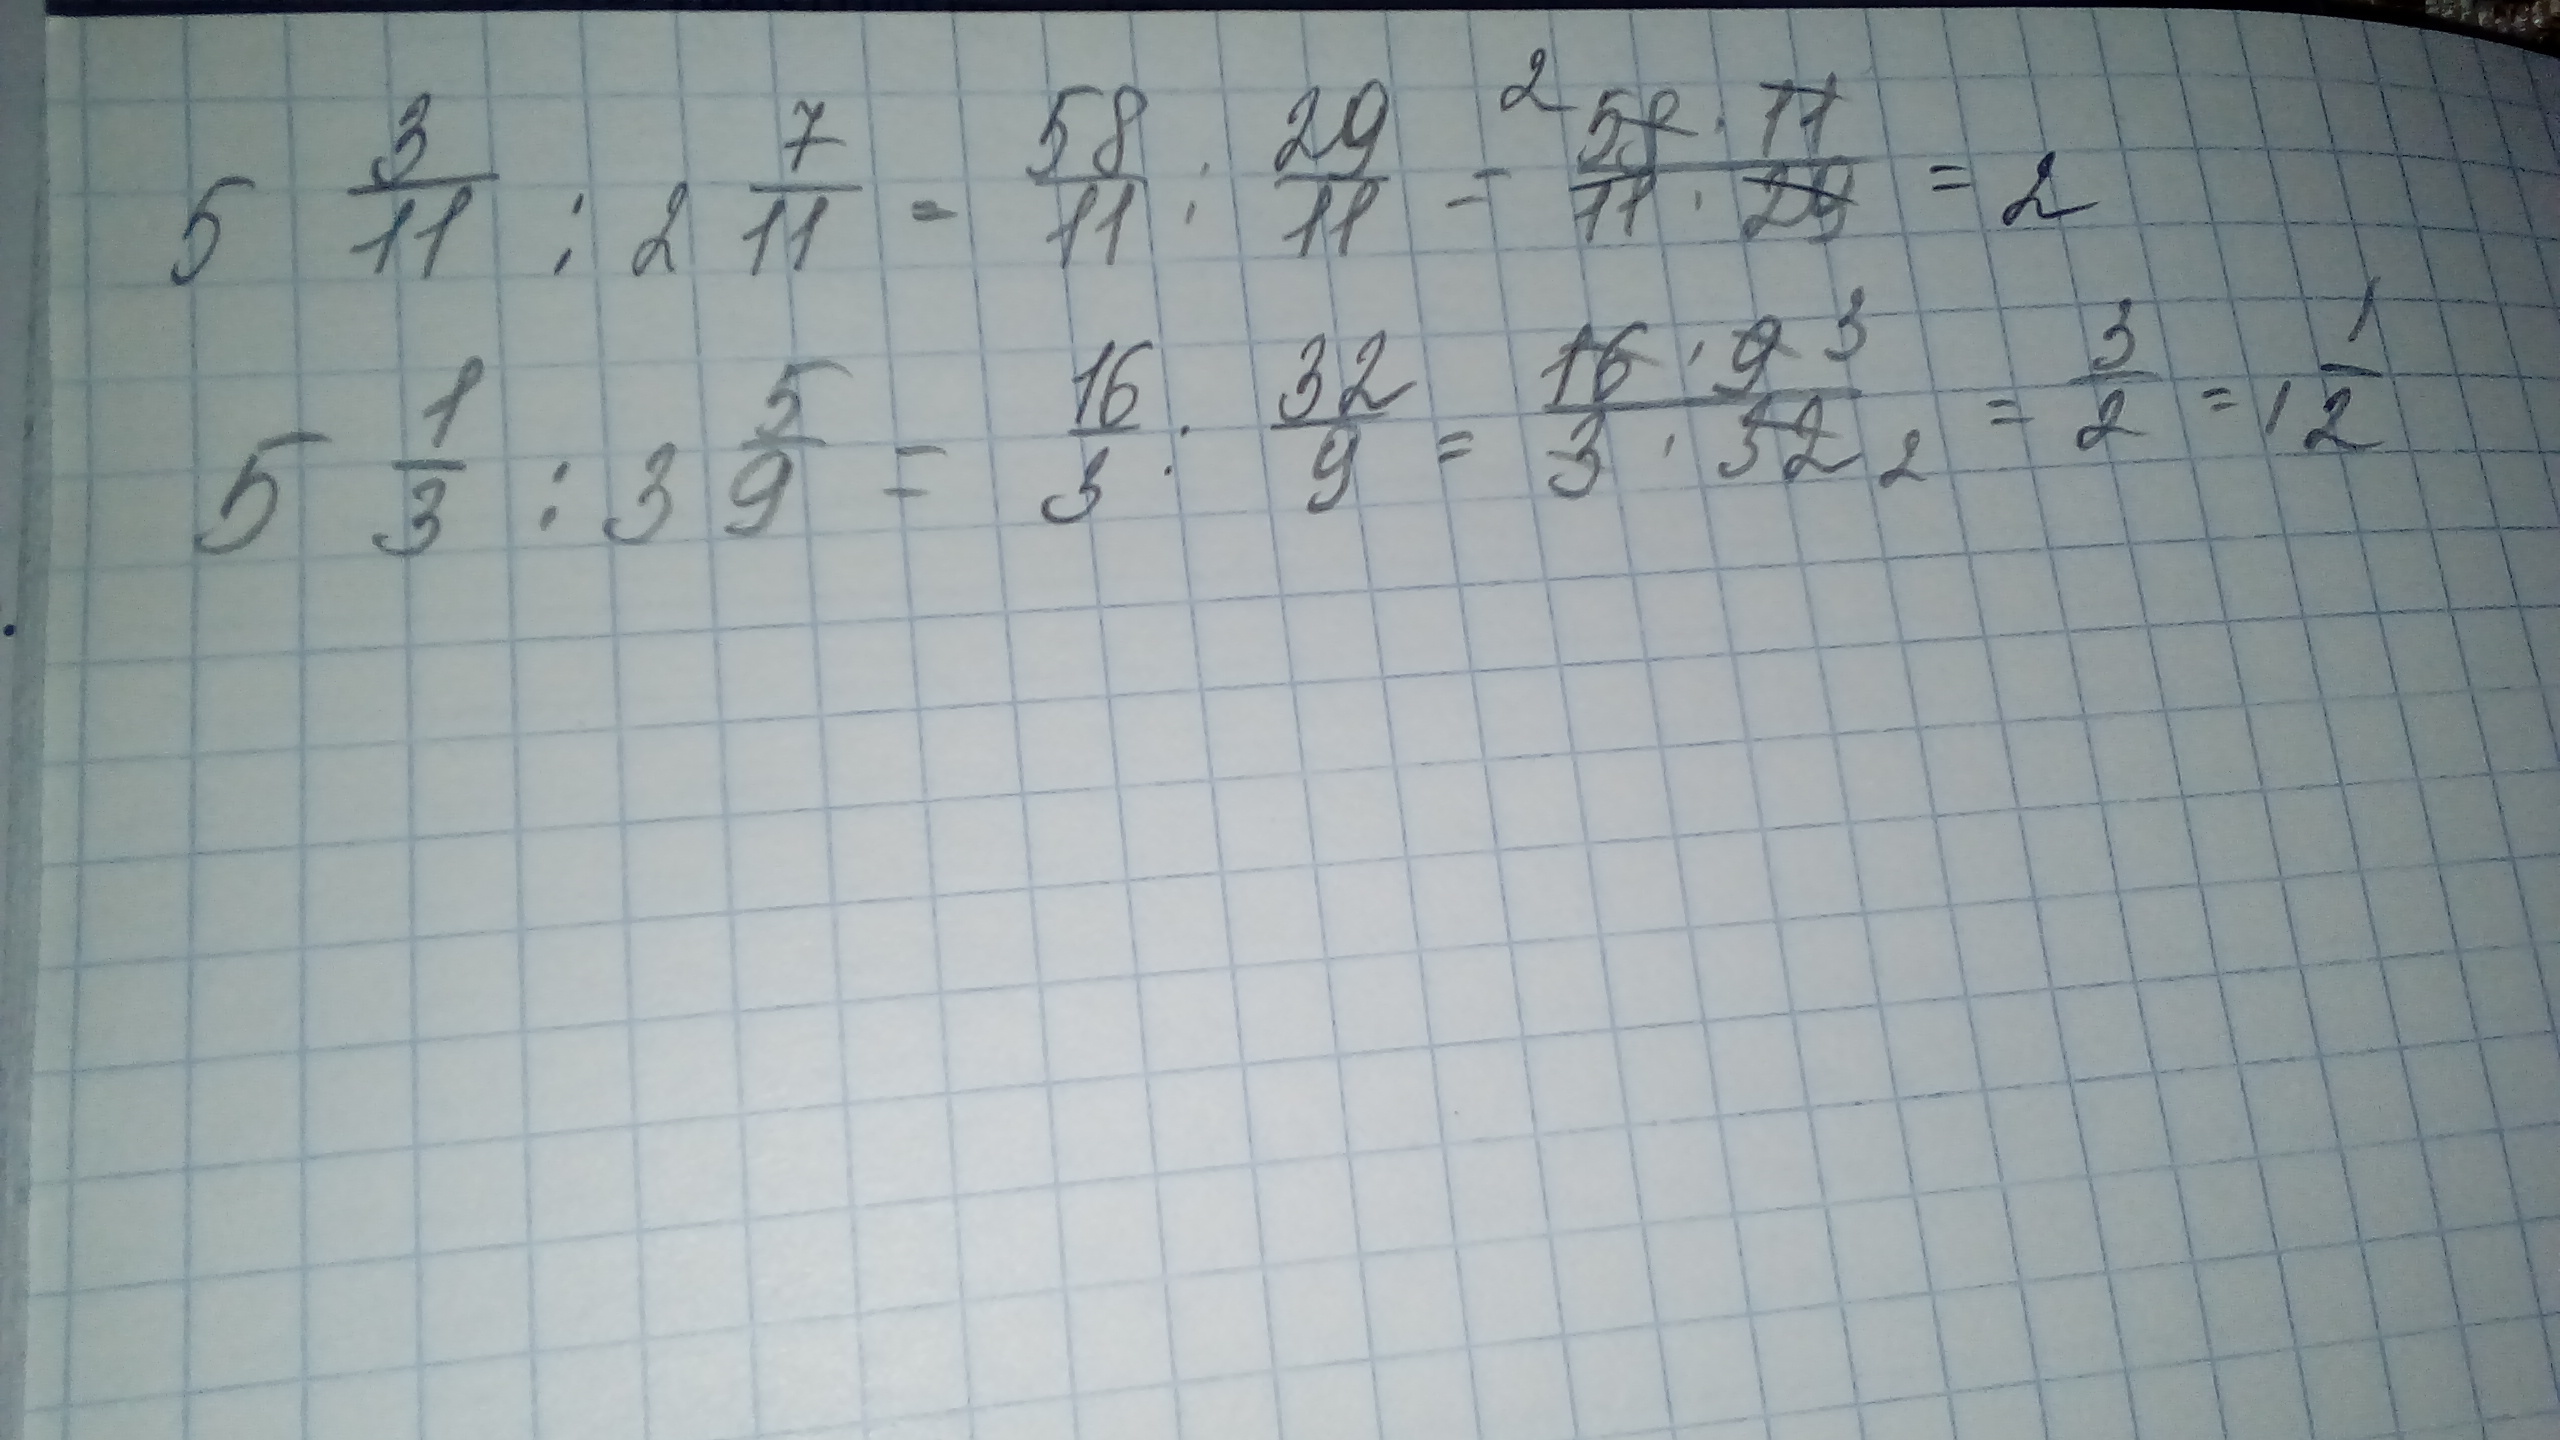 5 3/11 : 2 7/11 = 58/11 : 29/11 = 2 58 · 11 / 11 · 29 = 2
5 1/3 : 3 5/9 = 16/3 : 32/9 = 16 · 9 3 / 3 · 32 2 = 3/2 = 1 1/2